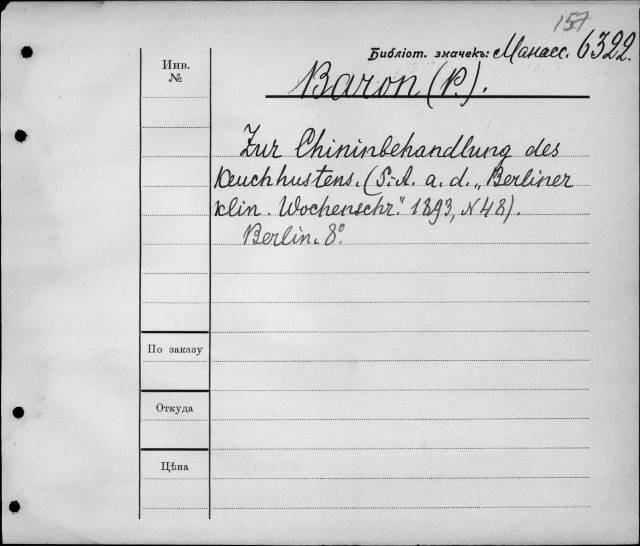 157
Библіот. значекъ: Манасс. 6322.
Инв.
№
Baron (P.).
Zur Chininbehandlung des
Keuchhustens. (S.-A. a. d. „Berliner
klin. Wochenschr." 1893, N 48).
Berlin. 8°.
По заказу
Откуда
Цѣна